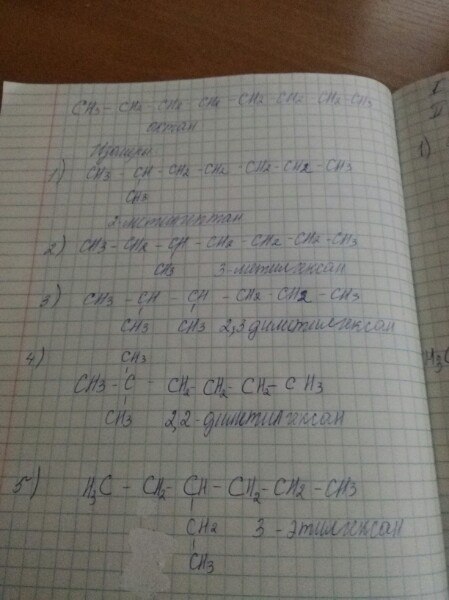 CH3 - CH2 - CH2 - CH2 - CH2 - CH2 - CH2 - CH3
октан
Изомеры
1) CH3 - CH - CH2 - CH2 - CH2 - CH2 - CH3
CH3
2-метилгептан
2) CH3 - CH2 - CH - CH2 - CH2 - CH2 - CH3
CH3 3-метилгексан
3) CH3 - CH - CH - CH2 - CH2 - CH3
CH3 CH3 2,3 диметилгексан
4) CH3
CH3 - C - CH2 - CH2 - CH2 - CH3
CH3 2,2-диметилгексан
5) H3C - CH2 - CH - CH2 - CH2 - CH3
CH2 3-этилгексан
CH3
I
II
1)
H3C